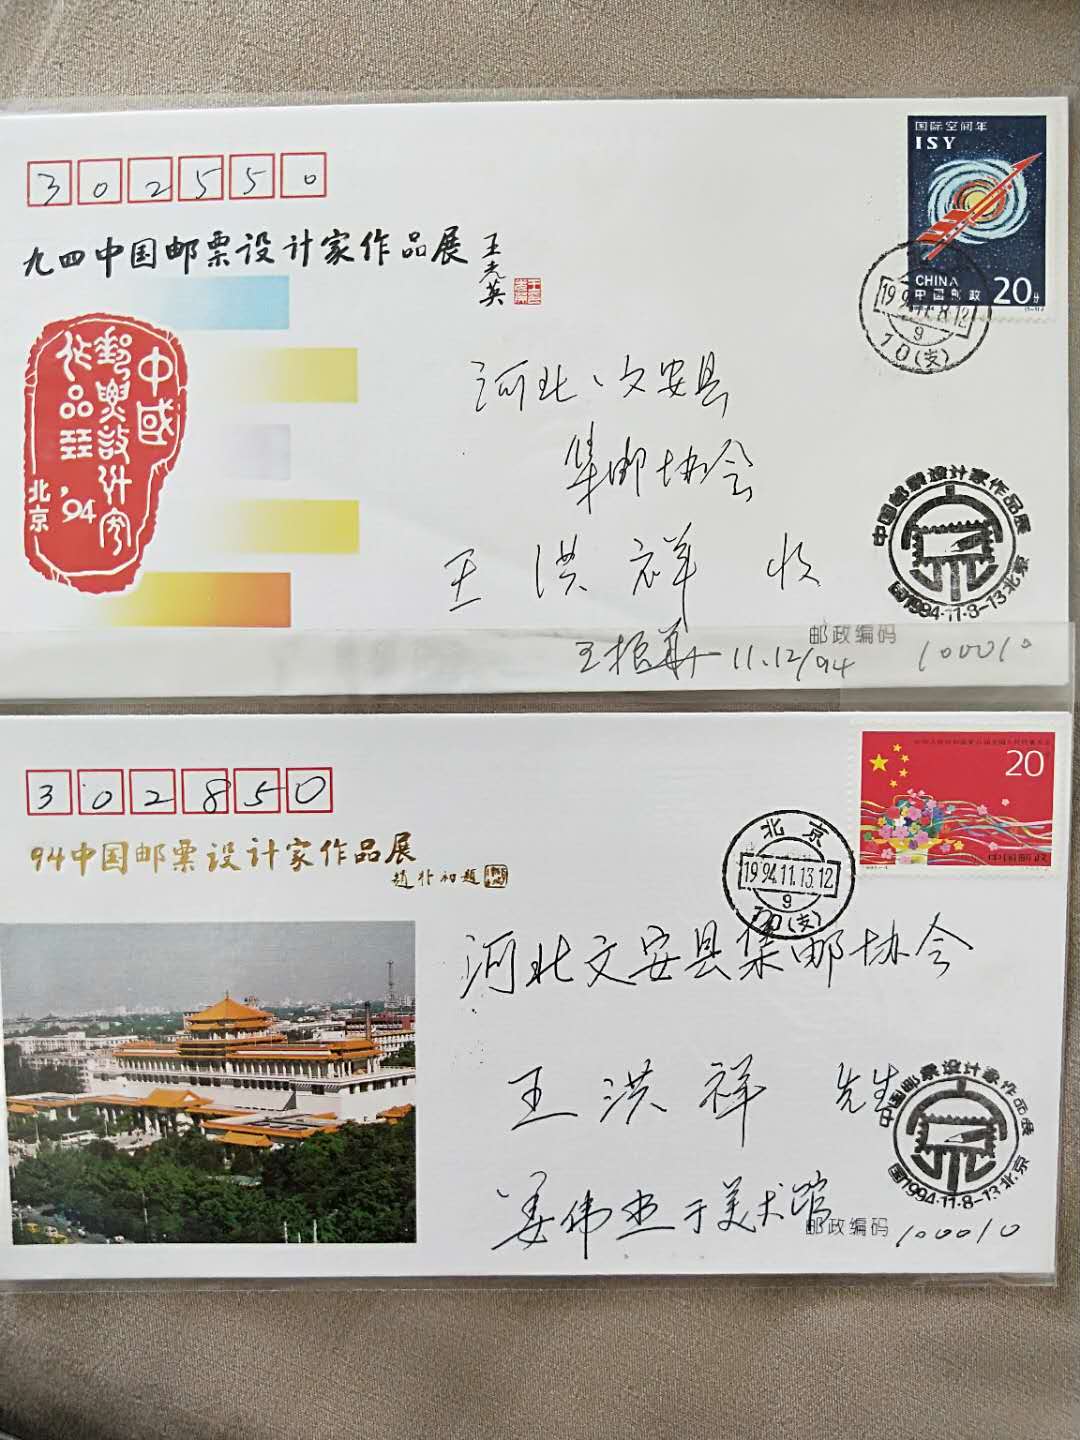 国际空间年
ISY
CHINA
中国邮政 20分
302550
九四中国邮票设计家作品展
王光英
中國
郵票設計家
作品展
'94
北京
1994.11.8.12
9
70(支)
河北、文安县
集邮协会
王洪祥 收
中国邮票设计家作品展
1994.11.8-13 北京
邮政编码 100010
王振华 11.12/94
20
中国邮政
302850
94中国邮票设计家作品展
赵朴初题
北京
1994.11.13.12
9
70(支)
河北文安县集邮协会
王洪祥 先生
中国邮票设计家作品展
1994.11.8-13 北京
姜伟杰于美术馆
邮政编码 100010